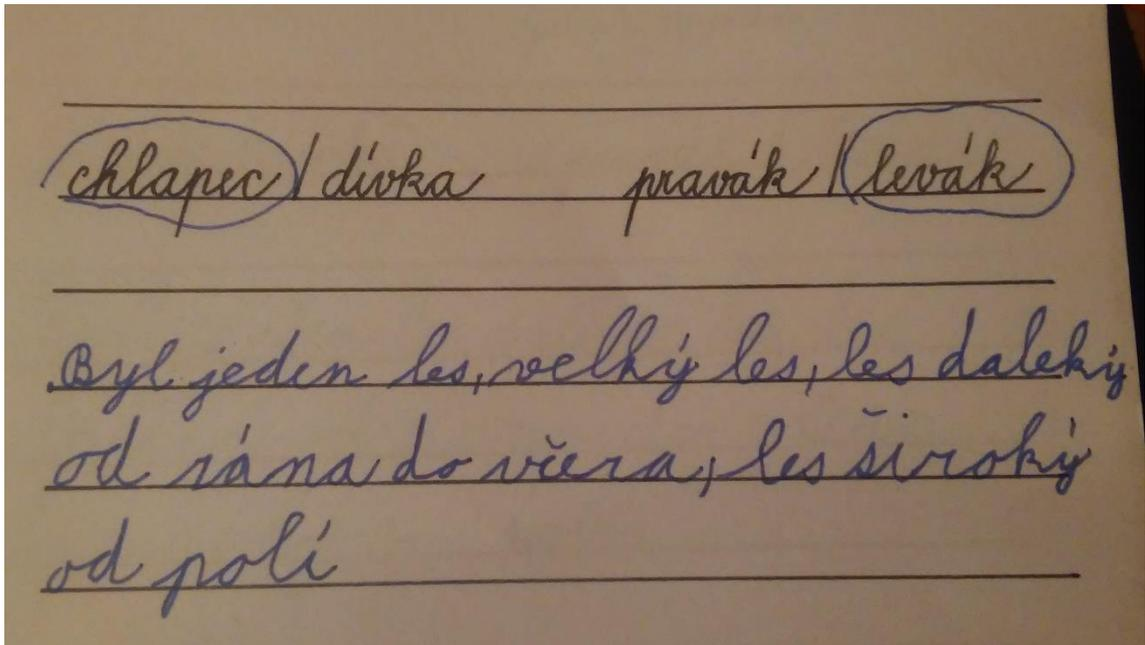 chlapec / dívka pravák / levák
Byl jeden les, velký les, les daleký
od rána do včera, les široký
od polí